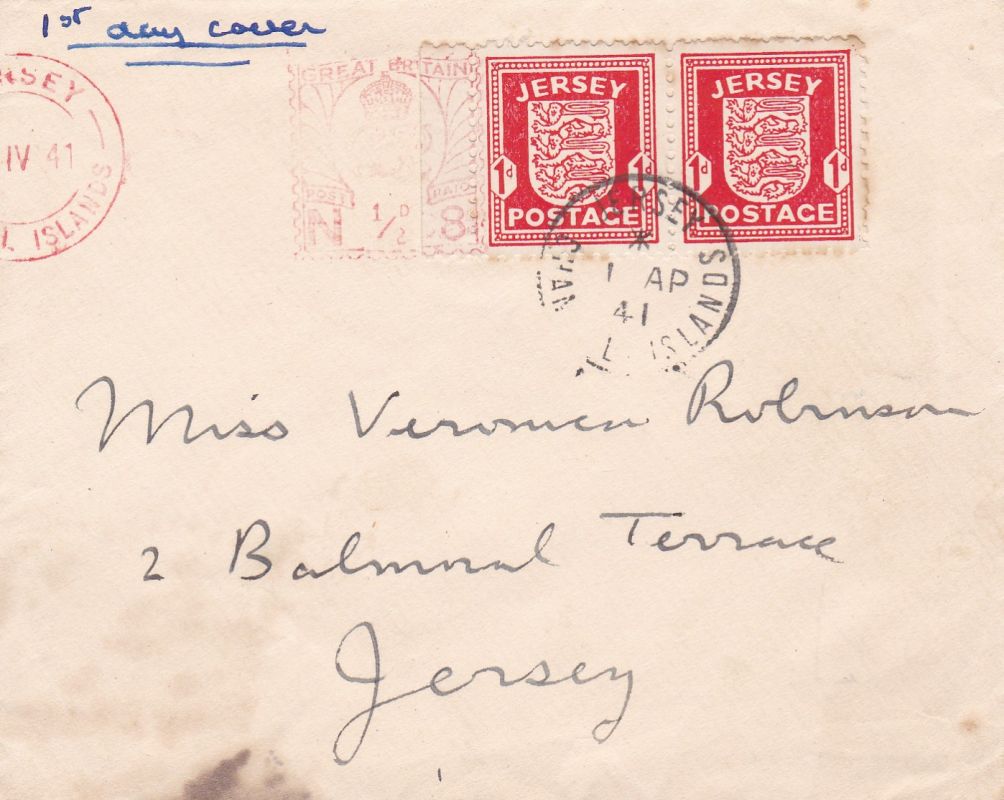 1st day cover
JERSEY
IV 41
L ISLANDS
GREAT BRITAIN
POST PAID
N 1/2D 8
JERSEY
1d 1d
POSTAGE
JERSEY
1d 1d
POSTAGE
JERSEY
1 AP
41
CHAN L ISLANDS
Miss Veronica Robinson
2 Balmoral Terrace
Jersey